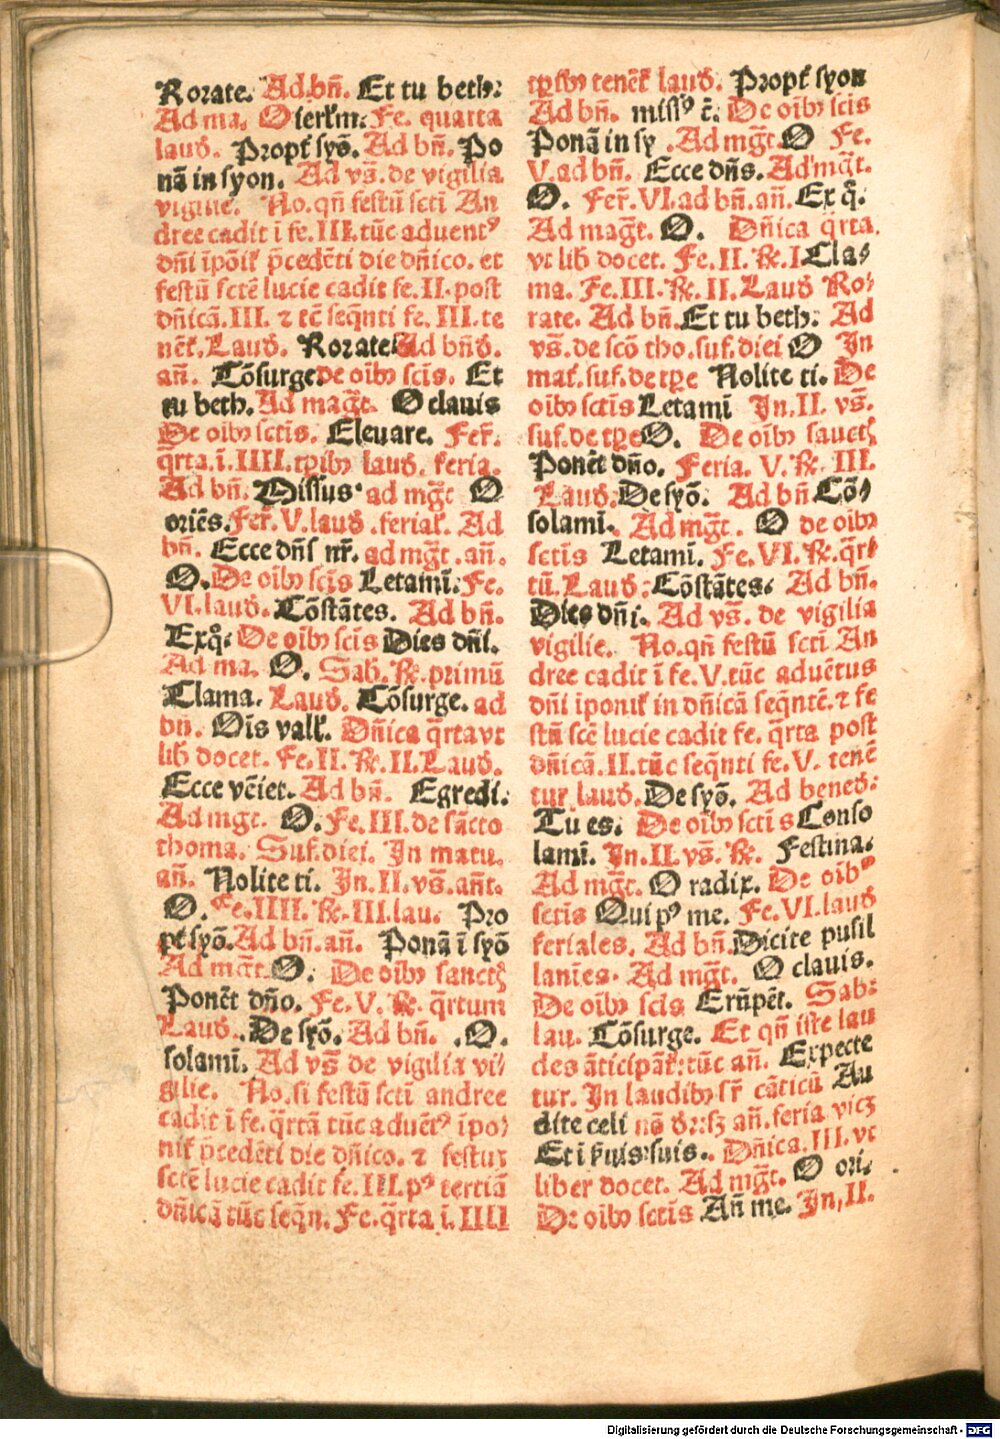 Rorate. Ad.bñ. Et tu beth:
Ad ma. O ierłm. Fe. quarta
laud̄. Propt̄ syō. Ad bñ. Po
nā in syon. Ad vs̄. de vigilia
vigilie. No. qñ festū scti An
dree cadit ī fe. III. tūc aduentꝰ
dñi īpōit̄ p̄cedēti die dñico. et
festū sctē lucie cadit fe. II. post
dñicā. III. ⁊ tē seq̄nti fe. III. te
nēt̄. Laud̄. Rorate. Ad bñd̄.
añ. Cōsurge. De oībꝰ scīs. Et
tu beth. Ad maḡt. O clauis
De oībꝰ sctīs. Eleuare. Fer̄.
q̄rta. ī. IIII. tp̄ibꝰ laud̄. feria.
Ad bñ. Missus. ad mḡt O
oriēs. Fer̄. V. laud̄. ferial̄. Ad
bñ. Ecce dñs nr̄. ad mḡt. añ.
O. De oībꝰ scīs Letamī. Fe.
VI. laud̄. Cōstātes. Ad bñ.
Exq̊. De oībꝰ scīs Dies dñi.
Ad ma. O. Sab. R. primū
Clama. Laud̄. Cōsurge. ad
bñ. Oīs vall̄. Dñica q̄rta vt
lib̄ docet. Fe. II. R. II. Laud̄.
Ecce vēiet. Ad bñ. Egredi.
Ad mgt. O. Fe. III. de sācto
thoma. Suf. diei. In matu.
añ. Nolite ti. In. II. vs̄. añt.
O. Fe. IIII. R. III. lau. Pro
pt̄ syō. Ad bñ. añ. Ponā ī syō
Ad mḡt. O. De oībꝰ sanctꝭ
Ponēt dño. Fe. V. R. q̄rtum
Laud̄. De syō. Ad bñ. O.
solamī. Ad vs̄ de vigilia vi
gilie. No. si festū scti andree
cadit ī fe. q̄rtā tūc aduētꝰ īpo
nit̄ p̄cedēti die dñico. ⁊ festuz
sctē lucie cadit fe. III. pꝰ tertiā
dñicā tūc seq̄n. Fe. q̄rta ī. IIII
tp̄ibꝰ tenēt̄ laud̄. Propt̄ syon
Ad bñ. missꝰ ē. De oībꝰ scīs
Ponā in sy. Ad mḡt. O Fe.
V. ad bñ. Ecce dñs. Ad mḡt.
O. Fer̄. VI. ad bñ. añ. Ex q̊.
Ad maḡt. O. Dñica q̄rta.
vt lib̄ docet. Fe. II. R. I Cla
ma. Fe. III. R. II. Laud̄ Ro
rate. Ad bñ. Et tu beth: Ad
vs̄. de scō tho. suf. diei O In
mat̄. suf. de tp̄e Nolite ti. De
oībꝰ sctīs Letamī In. II. vs̄.
suf. de tp̄e O. De oībꝰ sanctꝭ
Ponēt dño. Feria. V. R. III.
Laud̄. De syō. Ad bñ Cō
solamī. Ad mḡt. O de oībꝰ
sctīs Letamī. Fe. VI. R. q̄r
tū. Laud̄. Cōstātes. Ad bñ.
Dies dñi. Ad vs̄. de vigilia
vigilie. No. qñ festū scti An
dree cadit ī fe. V. tūc aduētus
dñi iponit̄ in dñicā seq̄ntē. ⁊ fe
stū scē lucie cadit fe. q̄rta post
dñicā. II. tūc seq̄nti fe. V. tenē
tur laud̄. De syō. Ad bened̄.
Tu es. De oībꝰ sctīs Conso
lamī. In. II. vs̄. R. Festina.
Ad mḡt. O radix. De oībꝰ
sctīs Qui pꝰ me. Fe. VI. laud̄
feriales. Ad bñ. Dicite pusil
lanies. Ad mḡt. O clauis.
De oībꝰ scīs Erūpēt. Sab.
lau. Cōsurge. Et qñ iste lau
des āticipāt̄. tūc añ. Expecte
tur. In laudibꝰ sr̄ cāticū Au
dite celi nō dr̄: sꝫ añ. feria vicꝫ
Et ī s̄uis suis. Dñica. III. vt
liber docet. Ad mḡt. O ori.
De oībꝰ sctīs Añ me. In. II.
Digitalisierung gefördert durch die Deutsche Forschungsgemeinschaft - DFG